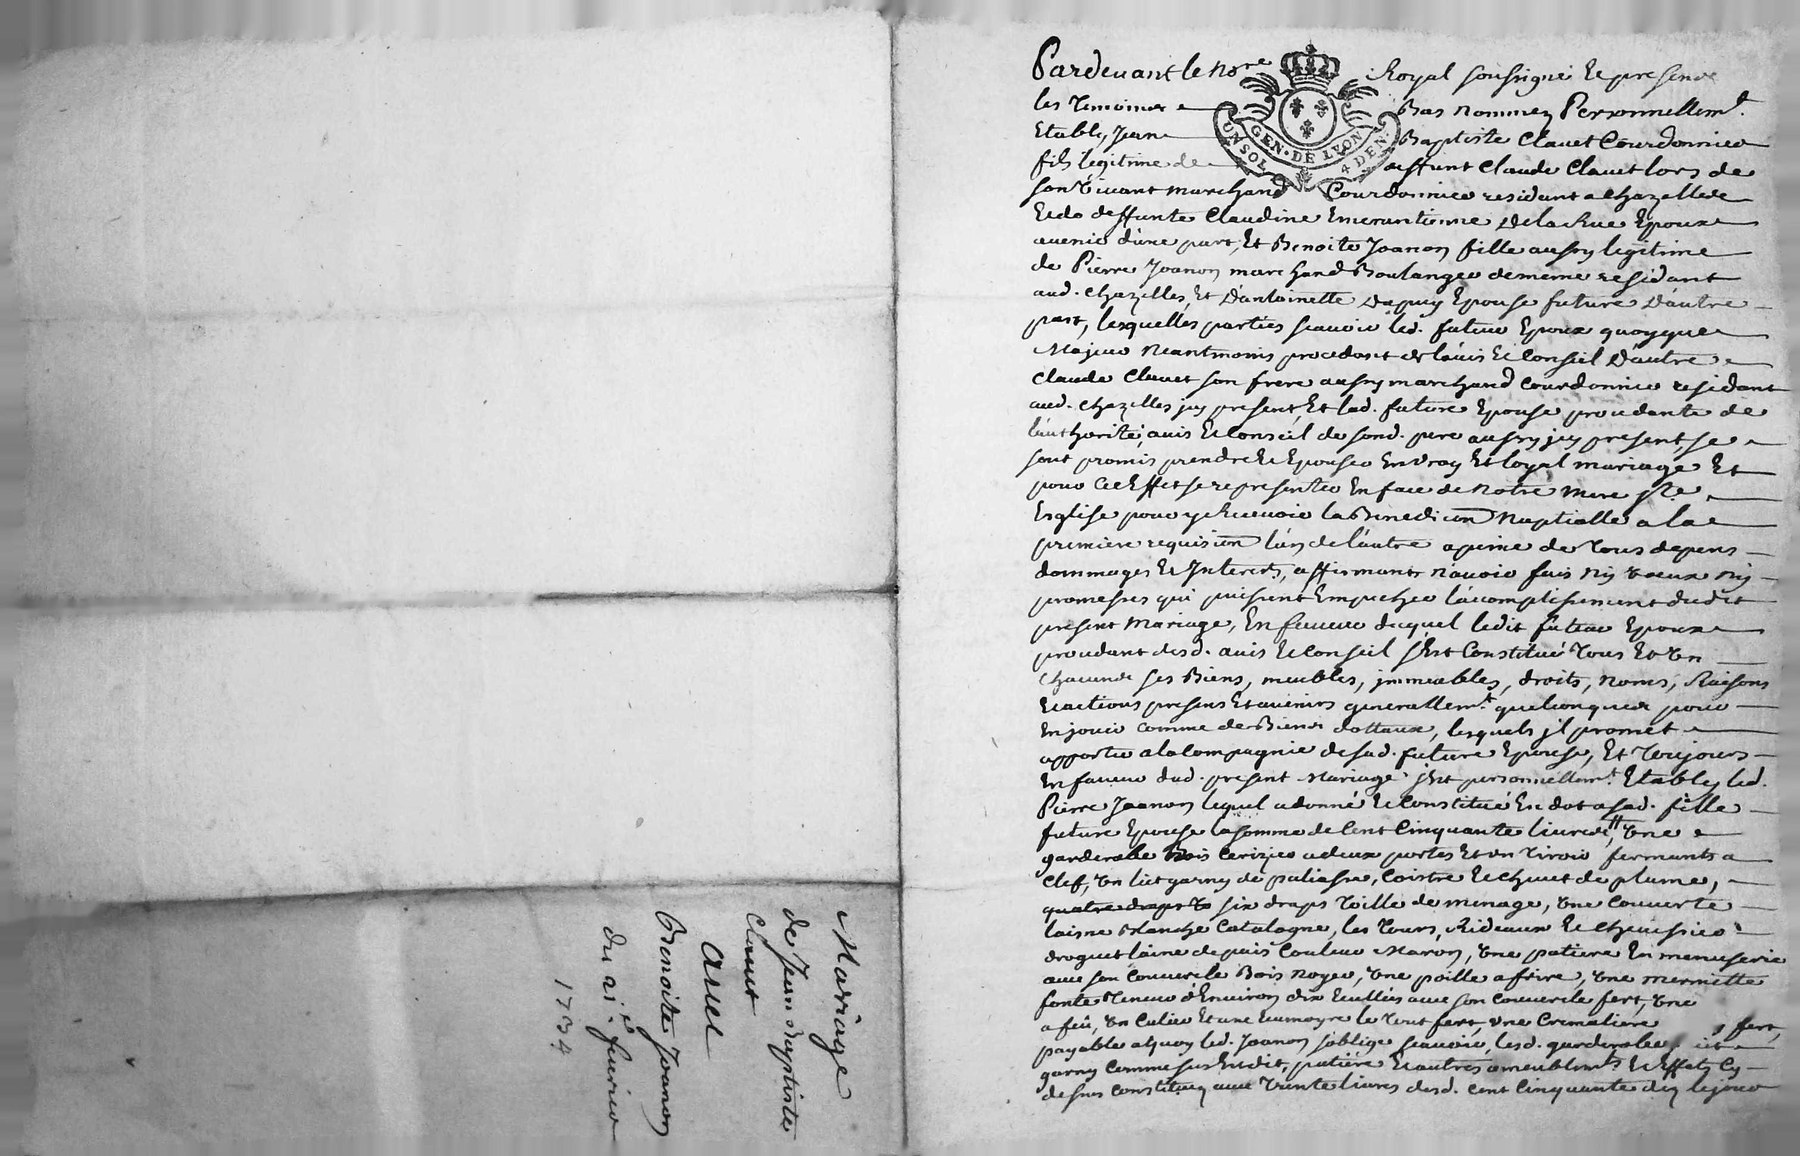 Mariage
de Jean Baptiste
Clavet
avec
Benoite Joanon
du 21e. fevrier
1734
Pardevant le No.re Royal soussigné Et presens
les Temoins Bas nommez Personnellem.t
Etably Jean Baptiste Clavet Courdonnier
fils legitime de deffunt Claude Clavet lors de
son Vivant marchand Courdonnier residant a chazelles
GEN. DE LYON
UN SOL 4 DEN.
Et de deffunte Claudine Emerantienne De la Rue Epoux
avenir d'une part, Et Benoite Joanon fille aussy legitime
de Pierre Joanon marchand Boulanger de meme residant
aud. chazelles, Et D'antoinette Dupuy Epouse future D'autre
part, lesquelles parties scavoir led. futur Epoux quoyque
Majeur Neantmoins procedant de l'avis Et Conseil D'autre
Claude Clavet son frere aussy marchand Courdonnier residant
aud. chazelles jcy present, Et lad. future Epouse procedante de
l'authorité, avis Et Conseil de sond. pere aussy jcy present, se
sont promis prendre Et Epouser En vray Et loyal mariage Et
pour Cet Effet se representer En face de Notre mere s.te
Esglise pour y Recevoir la Benediction Nuptialle a la
premiere requision l'un de l'autre a peine de Tous depens
dommages Et Interets, affirmants n'avoir fais Ny vœux Ny
promesses qui puissent Empecher l'acomplissement dudit
present Mariage, En faveur duquel ledit futur Epoux
procedant desd. avis Et Conseil s'Est Constitué Tous Et Un
Chacuns ses Biens, meubles, jmmeubles, droits, Noms, Raisons
Et actions presens Et avenirs generallem.t quelconques pour
En jouir Comme de Biens dottaux, lesquels jl promet
apporter a la Compagnie de sad. future Epouse, Et Toujours
En faveur dud. present Mariage s'Est personnellem.t Etably led.
Pierre Joanon lequel a donné Et Constitué En dot a sad. fille
future Epouse la somme de Cent Cinquante livres, Une
garderobe Bois Cerizier a deux portes Et un Tiroir fermants a
Clef, Un lict garny de paliasse, Coistre Et chevet de plume,
quatre draps & six draps Toille de menage, Une Couverte
laisne Blanche Catalogne, les Tours, Rideaux Et
droguet laine de pais Couleur Maron, Une patiere En menuserie
avec son Couvercle Bois Noyer, Une poille a frire, Une marmitte
fonte Teneur d'Environ dix Ecuelles avec son Couvercle fert, Une
a feu, Un Culier Et une Ecumoyre le Tout fert, Une Cremaliere fert,
payable a quoy led. Joanon s'oblige scavoir, lesd. garderobe, lit
garny Comme sus Est dit, patiere Et autres ameublem.ts Et Effets Cy
dessus Constituez avec Trente livres desd. Cent Cinquante du le jour